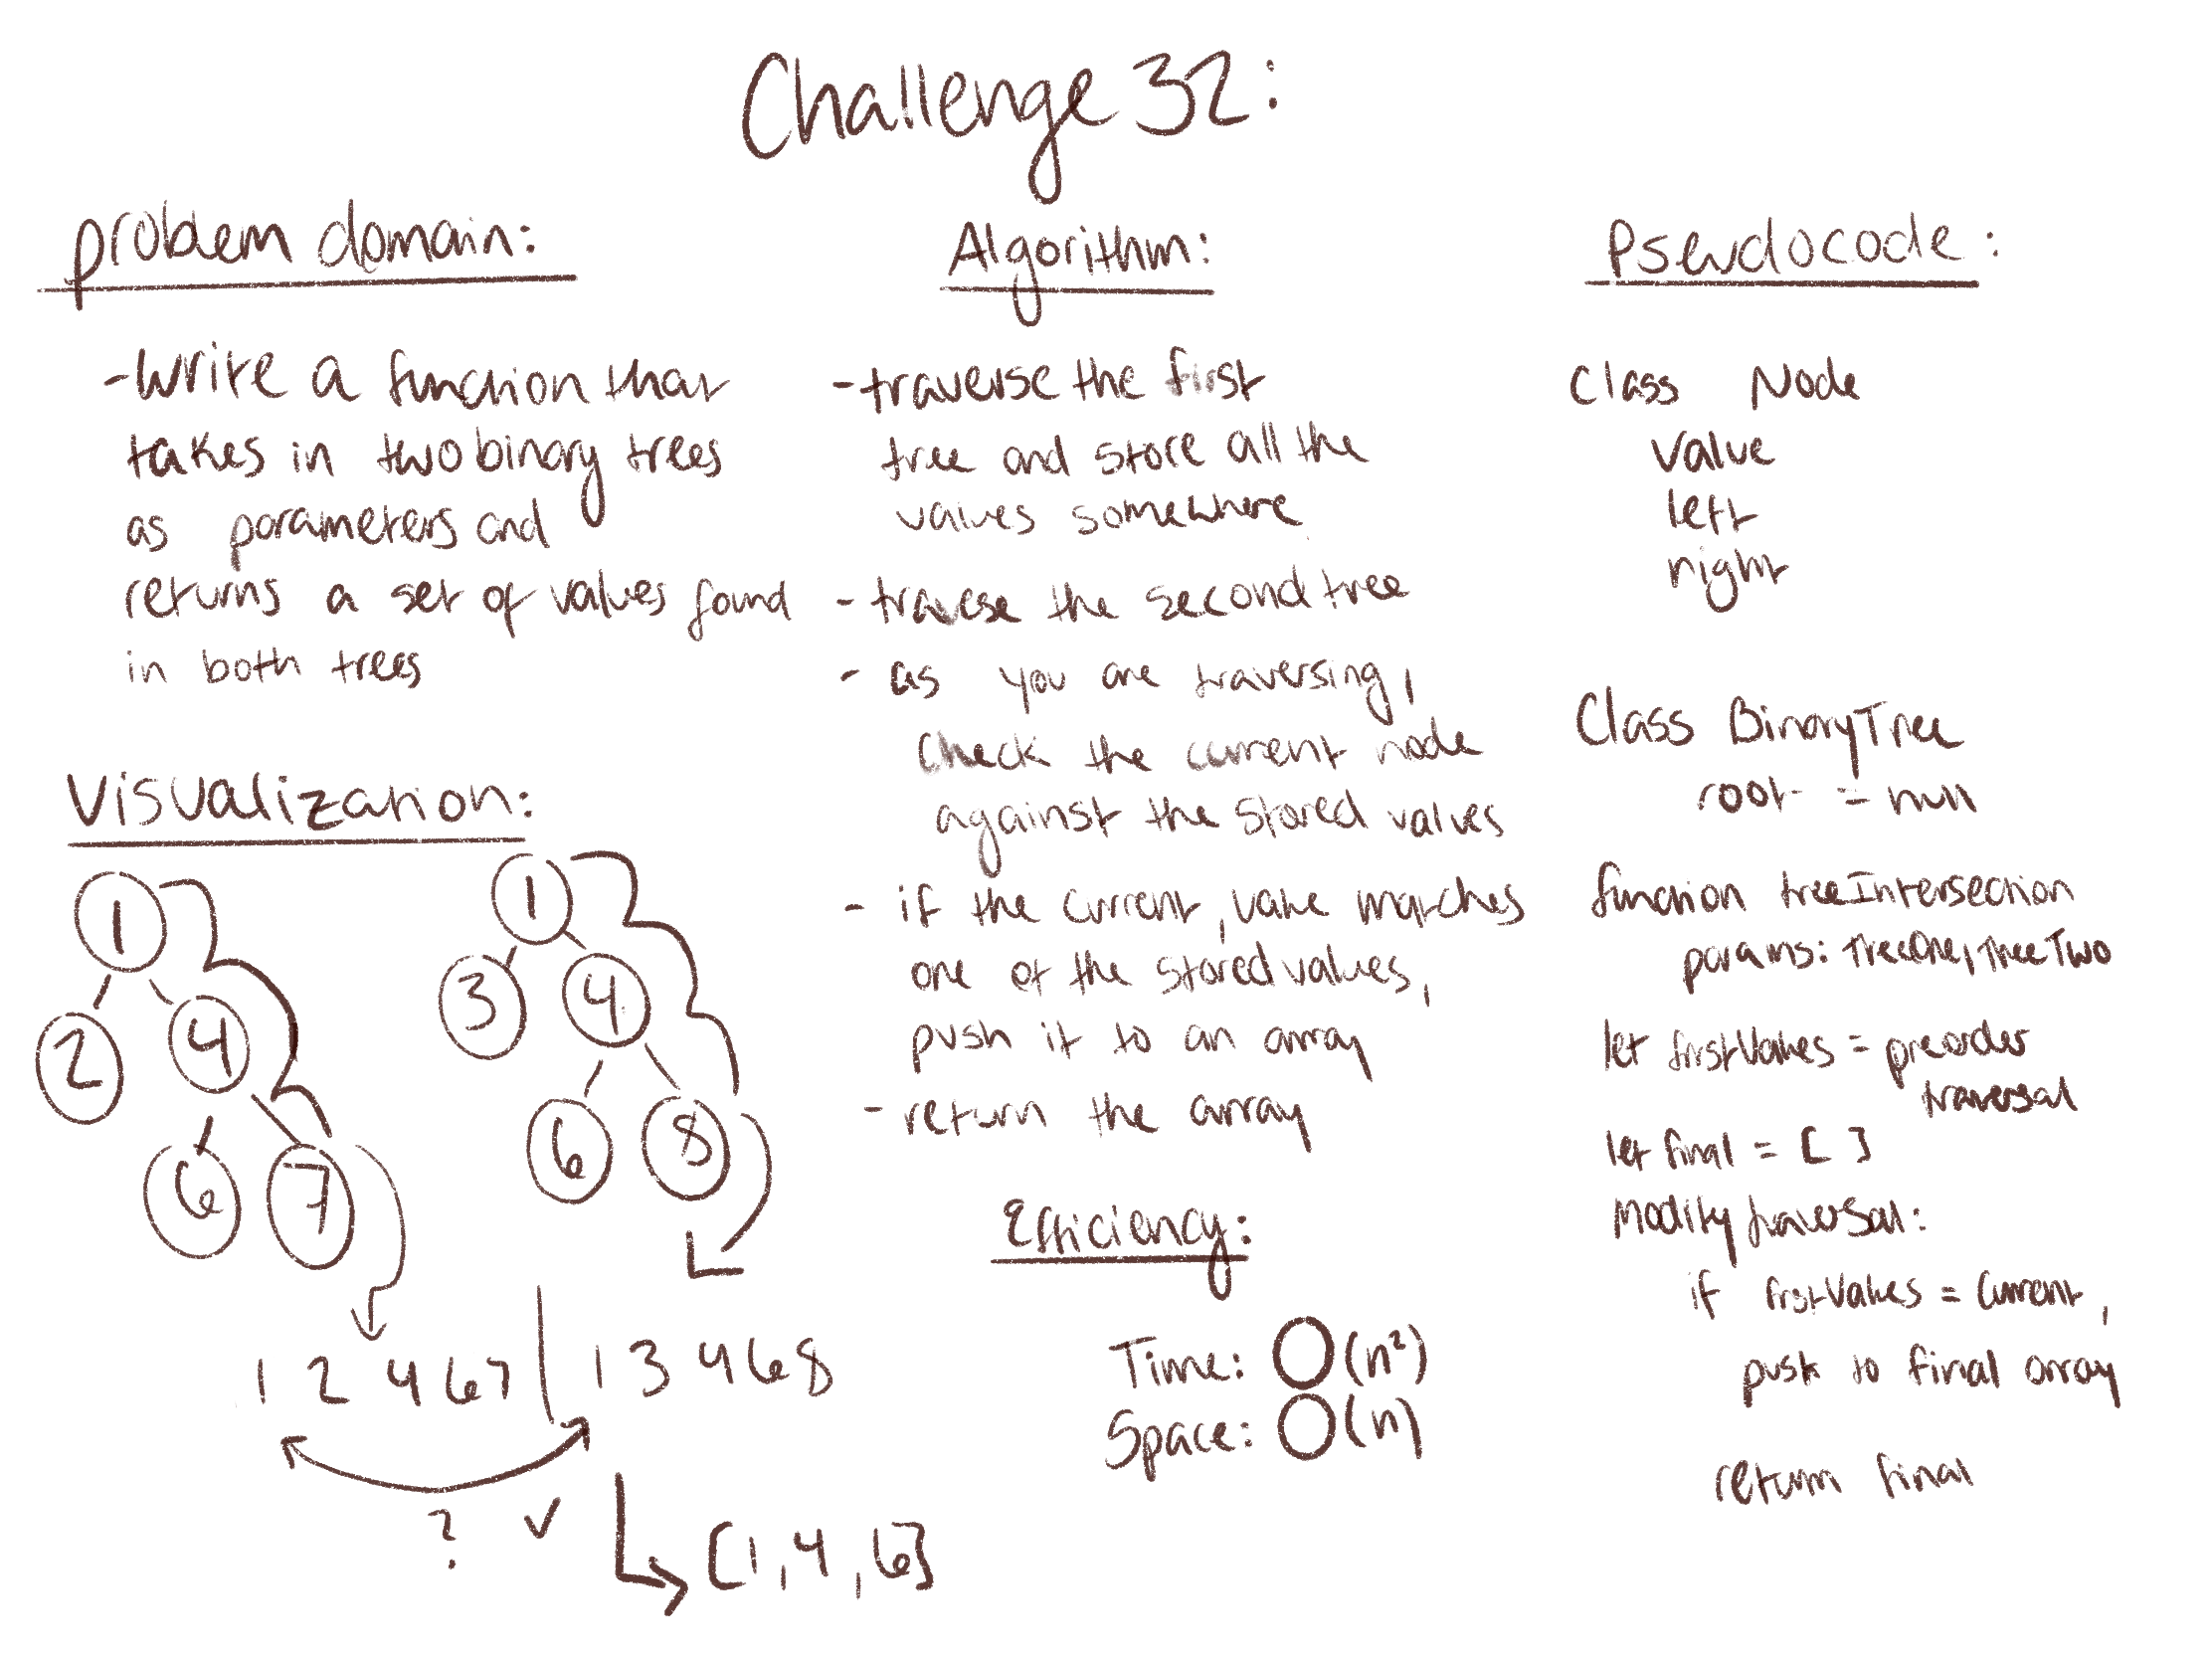 Challenge 32:
problem domain:
- Write a function that
takes in two binary trees
as parameters and
returns a set of values found
in both trees
Visualization:
1
2 4
6 7
1
3 4
6 8
1 2 4 6 7 | 1 3 4 6 8
? ✓
[1, 4, 6]
Algorithm:
- traverse the first
tree and store all the
values somewhere
- travese the second tree
- as you are traversing,
check the current node
against the stored values
- if the current, value matches
one of the stored values,
push it to an array
- return the array
Efficiency:
Time: O(n²)
Space: O(n)
Pseudocode:
Class Node
value
left
right
Class BinaryTree
root = null
function treeIntersection
params: TreeOne, TreeTwo
let firstValues = preorder
traversal
let final = [ ]
Modify traversal:
if firstValues = Current,
push to final array
return final